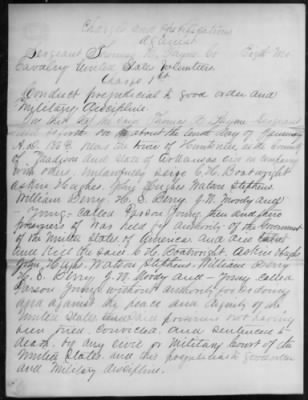 Charges and Specifications
against
Sergeant Thomas Payne Co Eighth Mo
Cavalry United States Volunteers
Charge 1st
Conduct prejudicial to good order and
Military discipline.
In this that he the said Thomas Payne Sergeant
did on or about the day of
A.D. 186 near the town of in the County
of and State of Arkansas in company
with others, unlawfully seize C H Boatwright
Asbur Hughes John Hughes Watson Stephens.
William Berry. H. S. Berry J. M. Moody and
- Young - called Parson Young then and there
prisoners of war held by authority of the Government
of the United States of America. and did
kill the said C H Boatwright Asbur Hughs
John Hughs Watson Stephens. William Berry
H. S. Berry J. M. Moody and - Young called
Parson Young without authority for so doing
and against the peace and dignity of the
United States said prisoners not having
been tried, convicted, and sentenced to
death, by any civil or Military Court of the
United States. and this prejudicial to good order
and Military discipline.